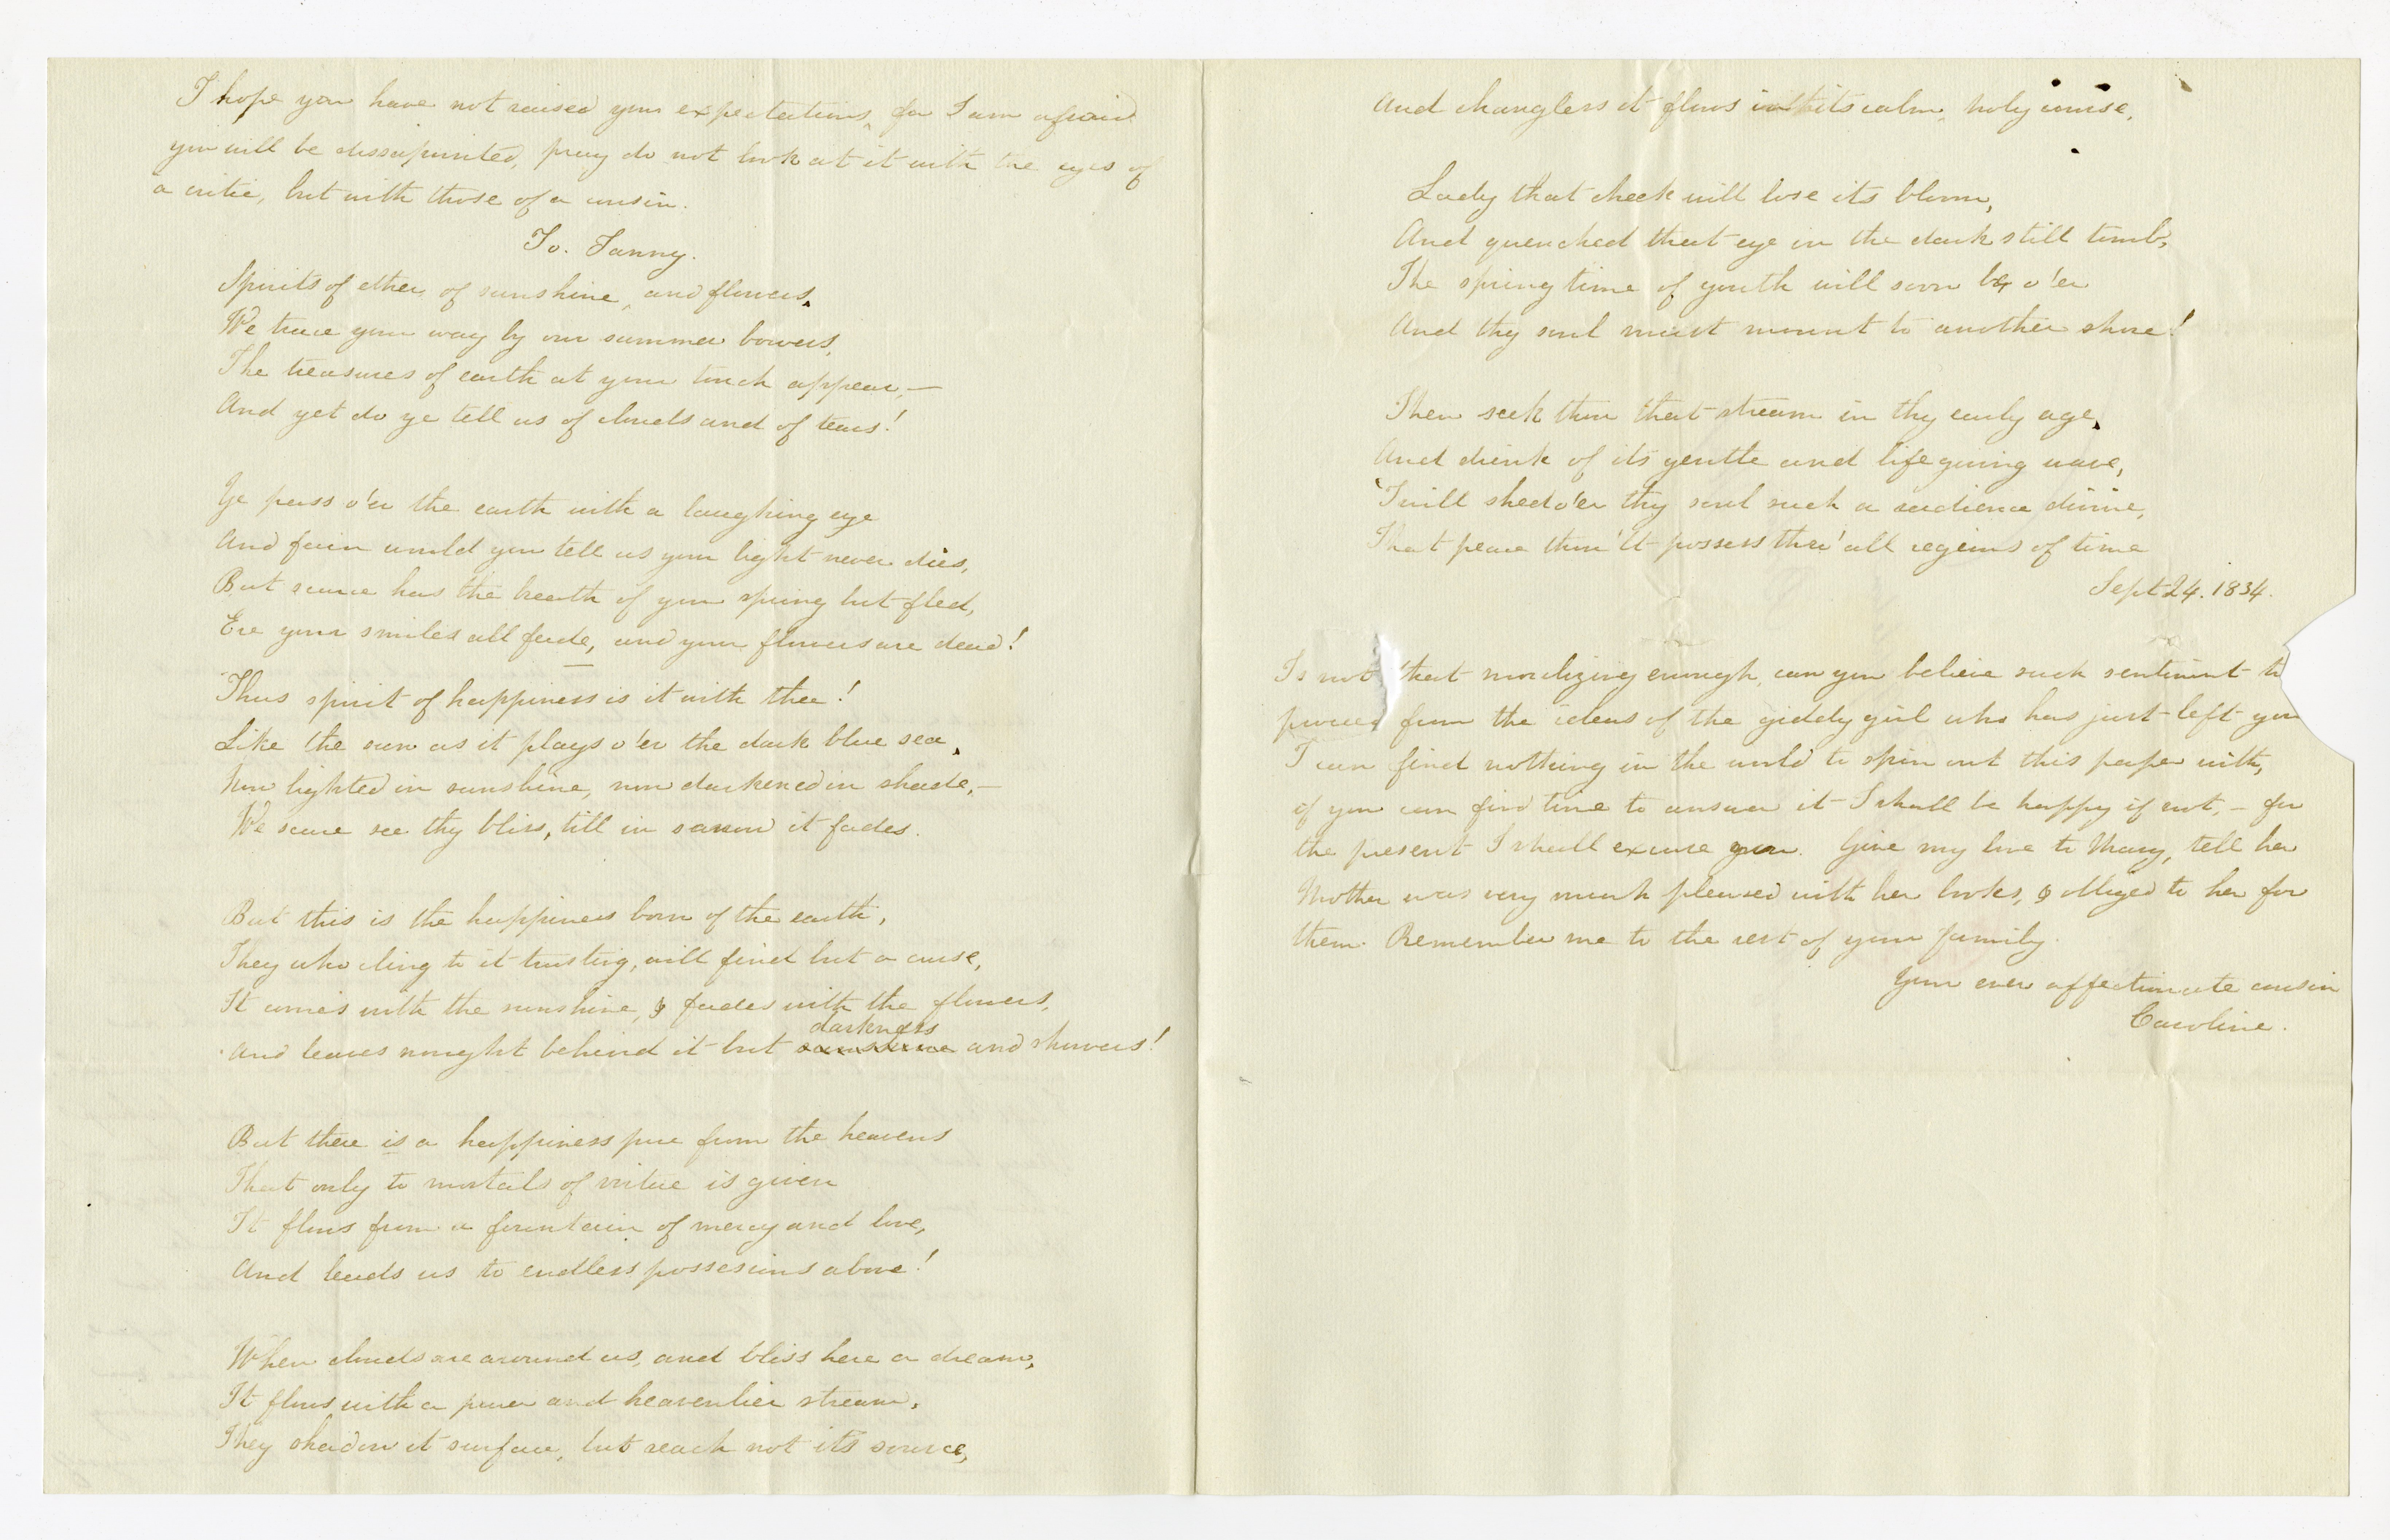 I hope you have not raised your expectations, for I am afraid
you will be dissapointed, pray do not look at it with the eyes of
a critic, but with those of a cousin.
To. Fanny.
Spirits of ether, of sunshine, and flowers,
We trace your way by our summer bowers,
The treasures of earth at your touch appear,—
And yet do ye tell us of clouds and of tears!
Ye pass o'er the earth with a laughing eye
And fain would you tell us your light never dies,
But scarce has the breath of your spring but fled,
Ere your smiles all fade, and your flowers are dead!
Thus spirit of happiness is it with thee!
Like the sun as it plays o'er the dark blue sea,
Now lighted in sunshine, now darkened in shade,—
We scarce see thy bliss, till in sorrow it fades.
But this is the happiness born of the earth,
They who cling to it trusting, will find but a curse,
It comes with the sunshine, & fades with the flowers,
And leaves nought behind it but sunshine darkness and showers!
But there is a happiness pure from the heavens
That only to mortals of virtue is given
It flows from a fountain of mercy and love,
And leads us to endless possesions above!
When clouds are around us, and bliss here a dream,
It flows with a purer and heavenlier stream,
They shadow it surface, but reach not its source,
And changless it flows in its calm, holy course,
Lady that cheek will lose its bloom,
And quenched that eye in the dark still tomb,
The spring time of youth will soon be o'er
And thy soul must mount to another shore!
Then seek thou that stream in thy early age,
And drink of its gentle and life giving wave,
'Twill shed o'er thy soul such a radience divine,
That peace thou'lt possess thro' all regions of time
Sept 24. 1834.
Is not that moralizing enough, can you believe such sentiment to
proceed from the ideas of the giddy girl who has just left you
I can find nothing in the world to spin out this paper with,
if you can find time to answer it I shall be happy if not, – for
the present I shall excuse you. Give my love to Mary, tell her
Mother was very much pleased with her books, & obliged to her for
them. Remember me to the rest of your family.
Your ever affectionate cousin
Caroline.